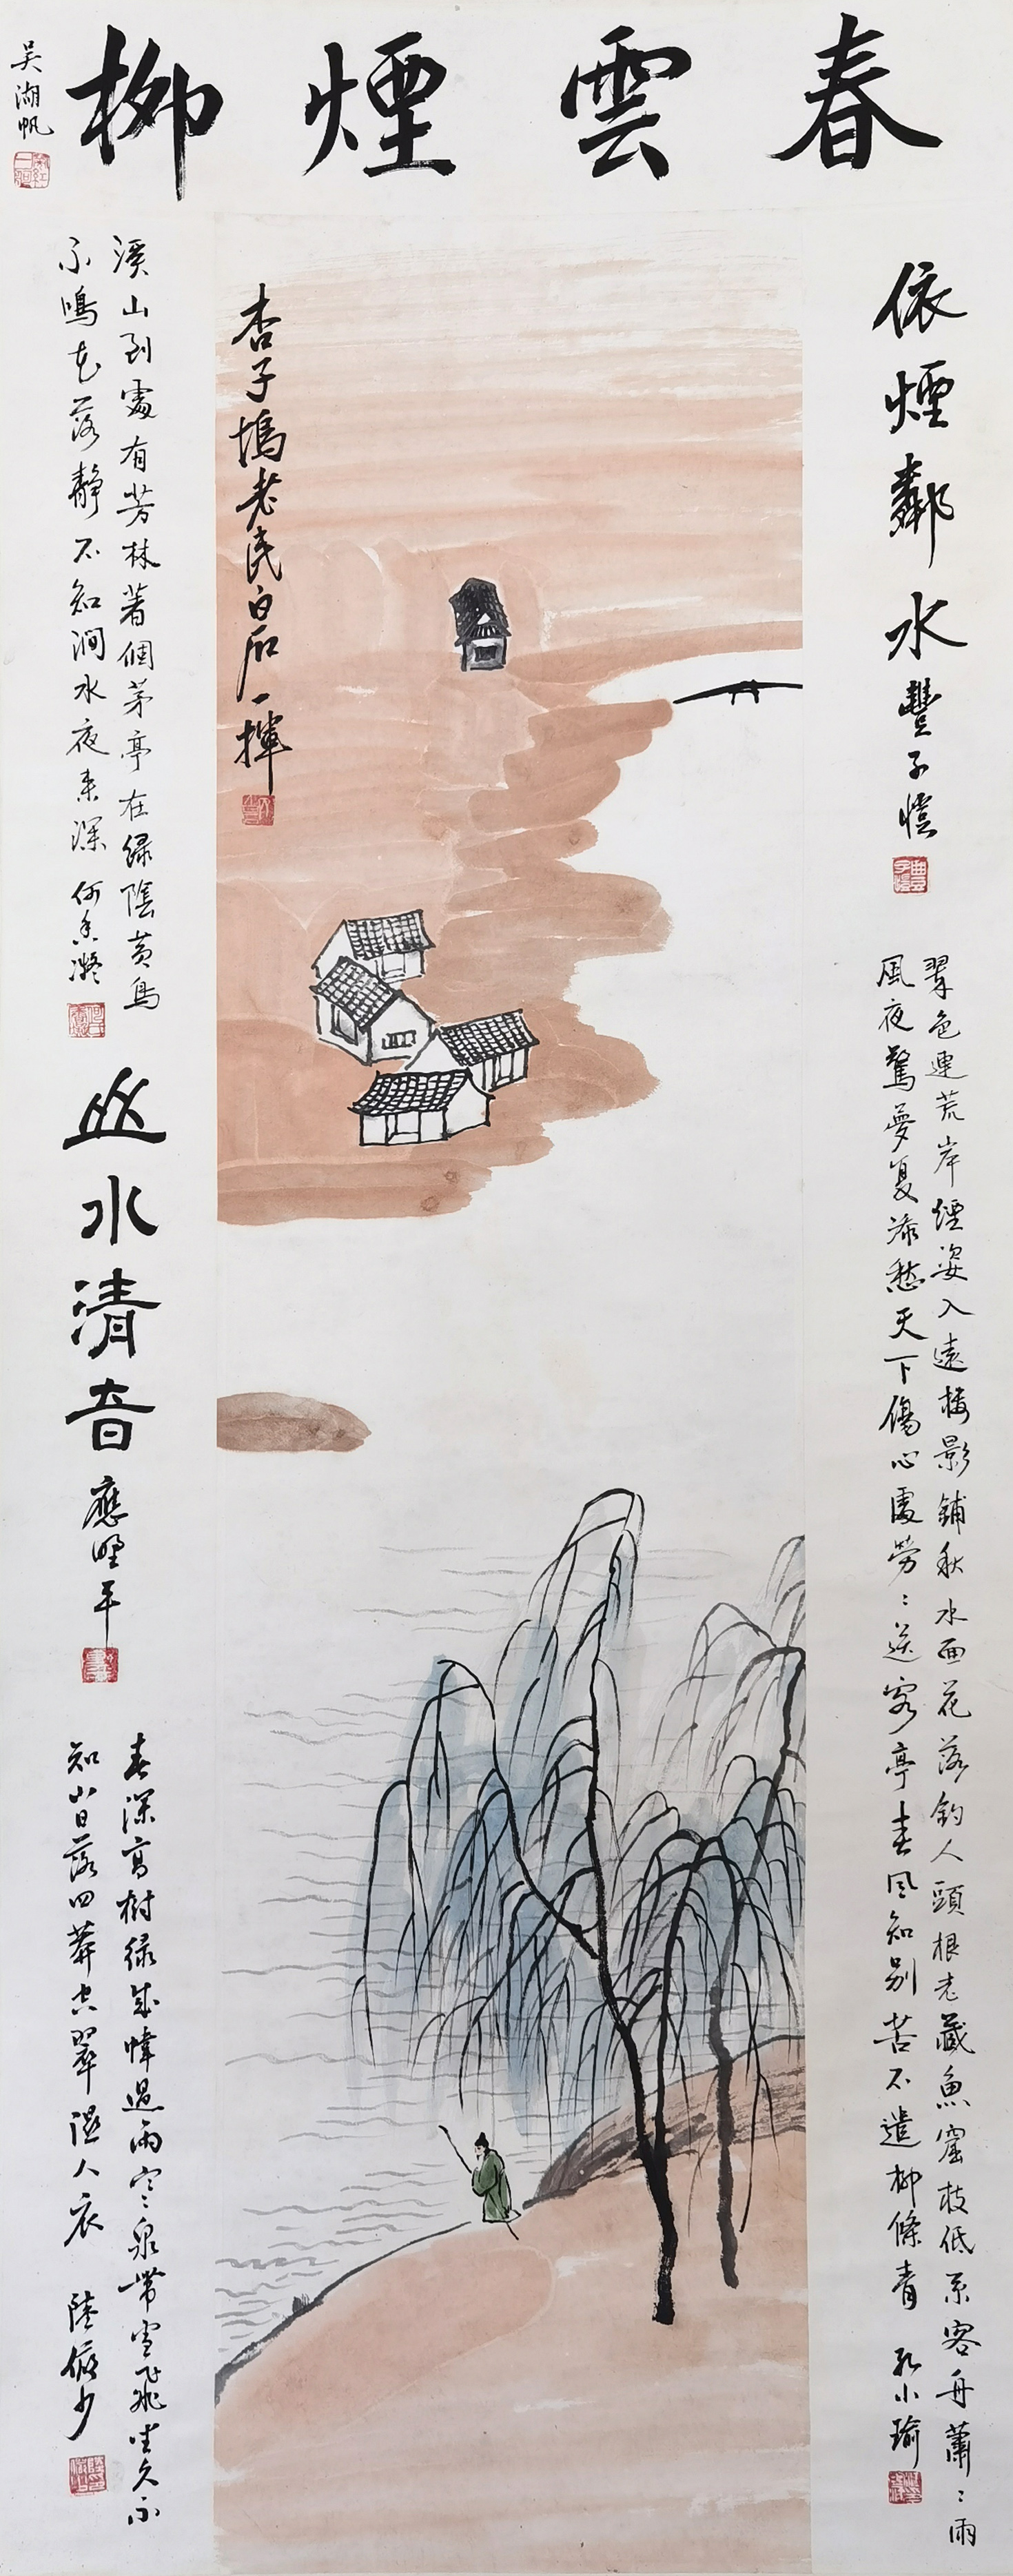 春雲煙柳
吳湖帆
依煙鄰水
豐子愷
翠色連荒岸煙姿入遠樓影鋪秋水面花落釣人頭根老藏魚窟枝低系客舟蕭〻雨
風夜驚夢夏添愁天下傷心處勞〻送客亭春風知別苦不遣柳條青 孔小瑜
杏子塢老民白石一揮
溪山到處有芳林著個茅亭在綠陰黃鳥
不鳴花落靜不知澗水夜來深 何香凝
山水清音
應野平
春深高樹綠成幃過雨寒泉帶雪飛坐久不
知山日落四莽空翠濕人衣 陸儼少